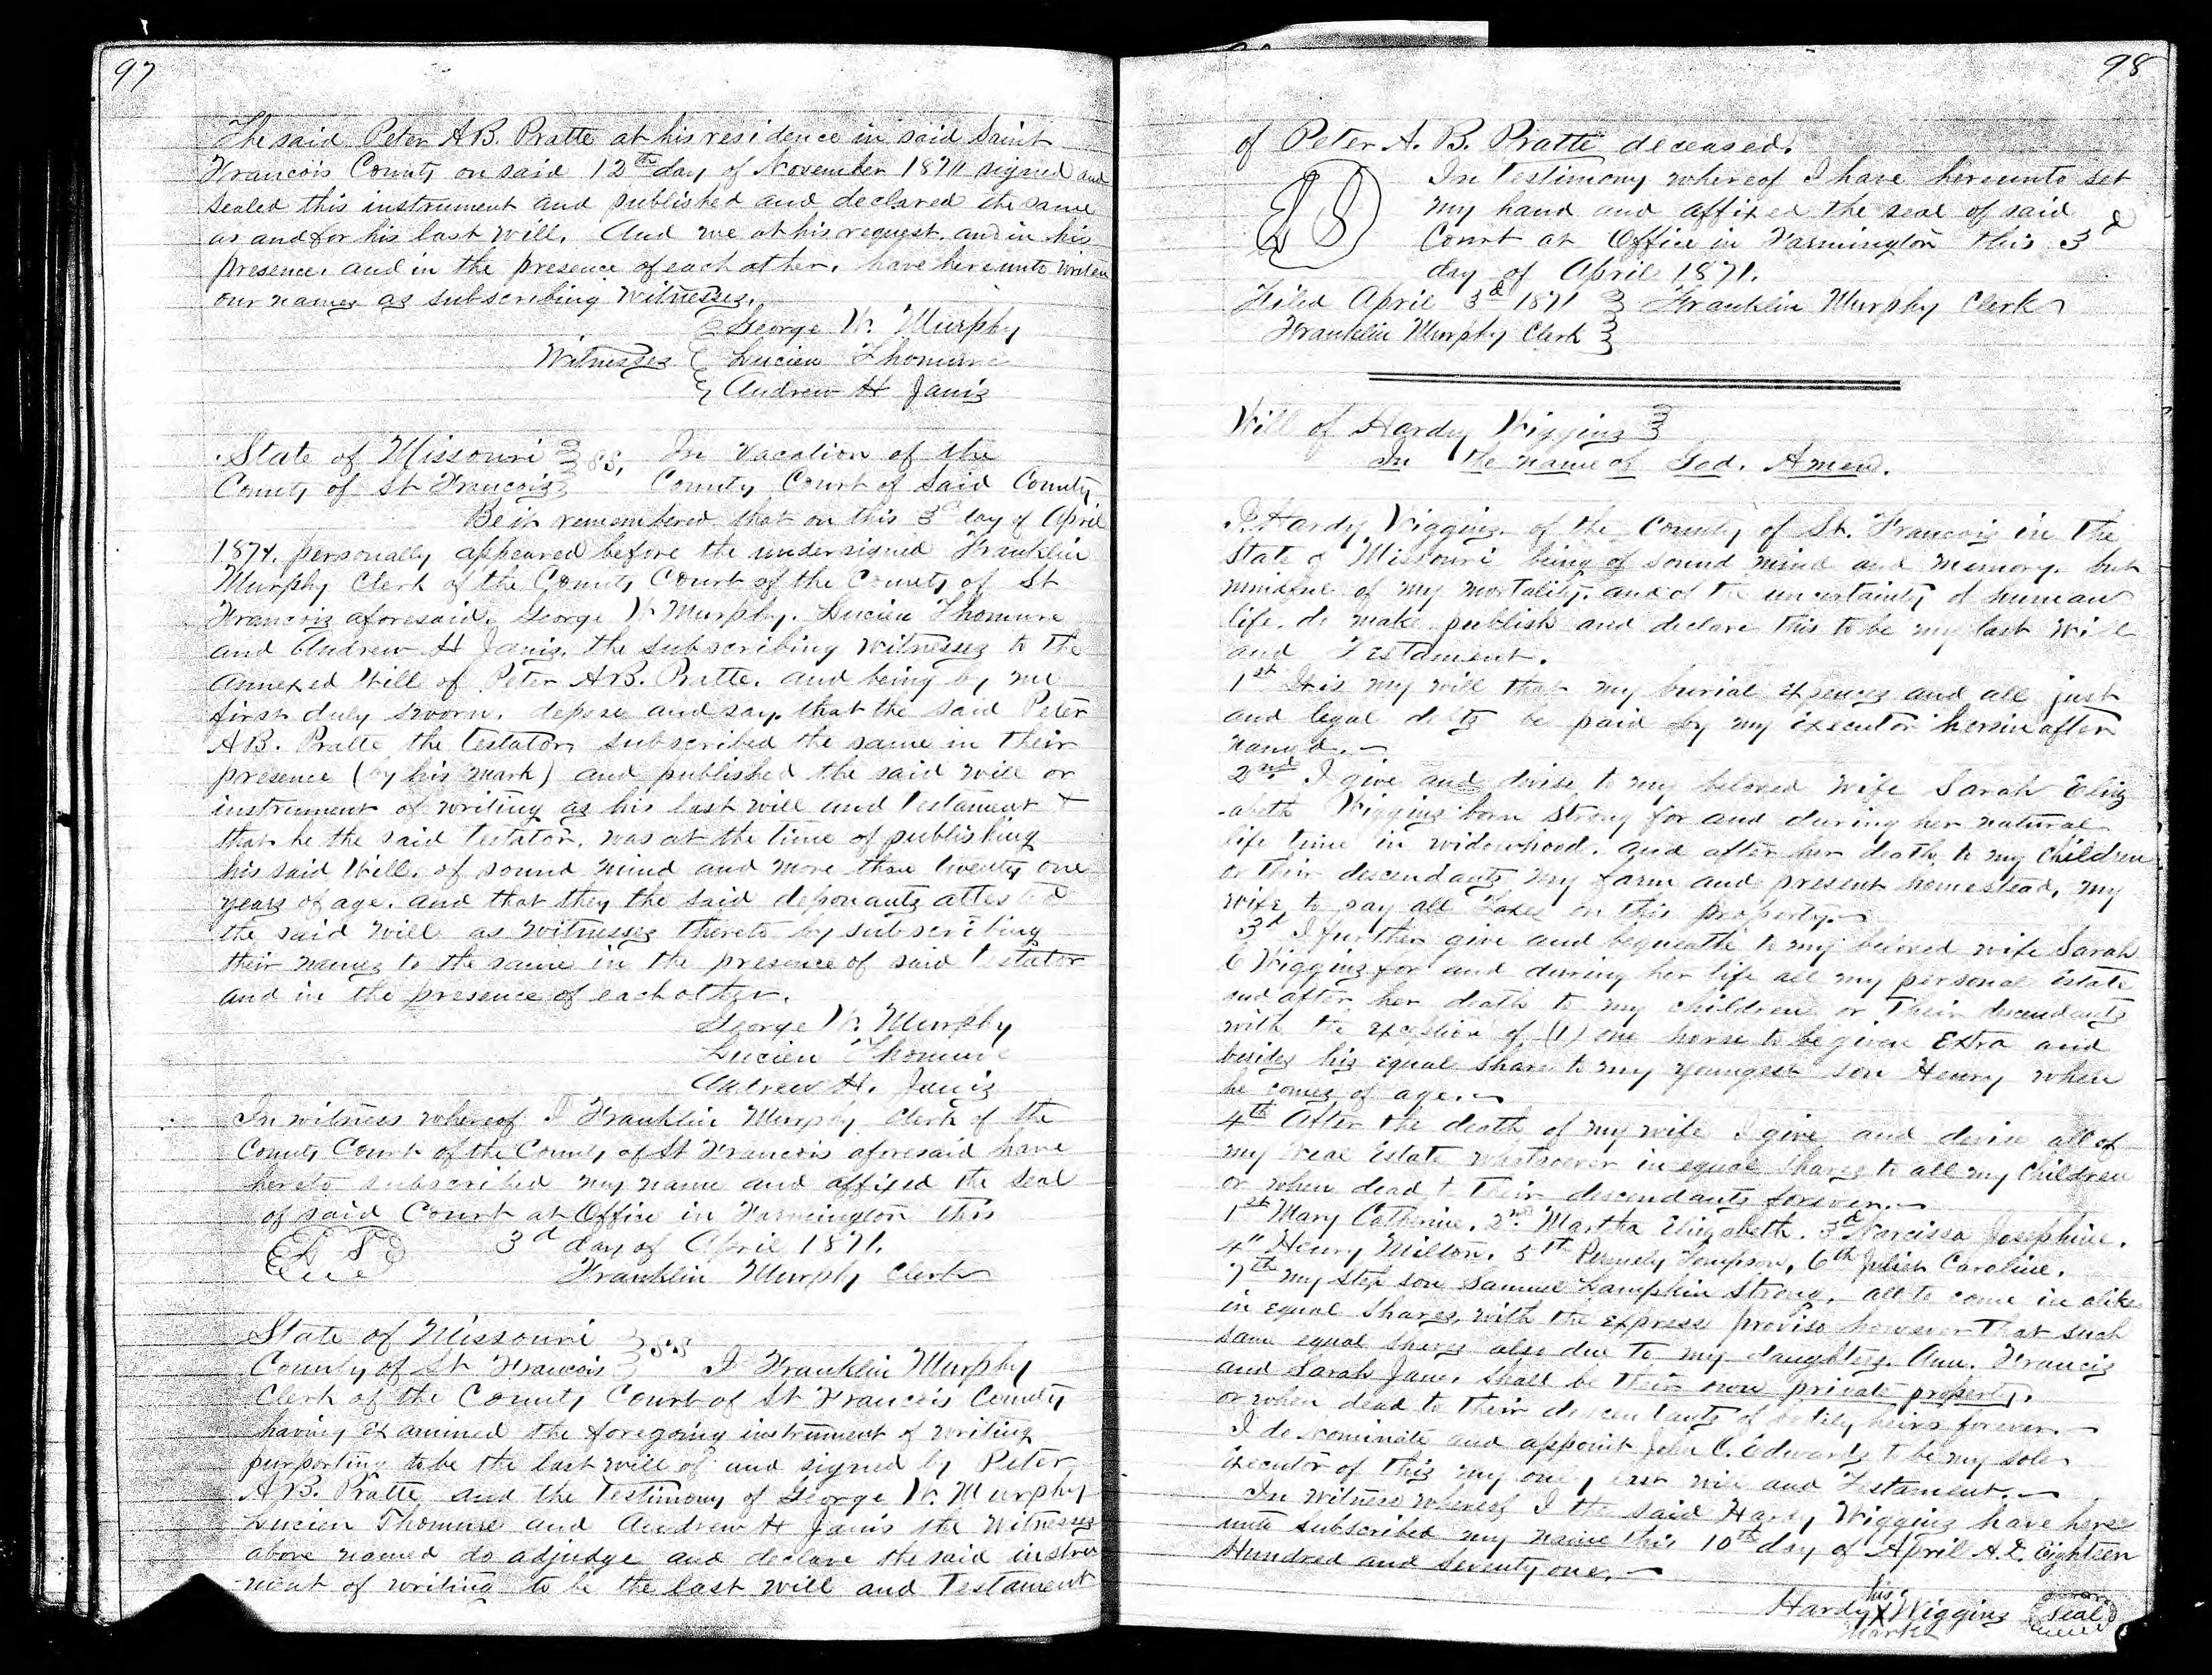 97
The said Peter A B. Pratte at his residence in said Saint
Francois County on said 12th day of November 1870 signed and
sealed this instrument and published and declared the same
as and for his last will. And we at his request, and in his
presence, and in the presence of each other, have hereunto writen
our names as subscribing Witnesses.
George W. Murphy
Witnesses Lucien Thomure
Andrew H Janis
State of Missouri } SS. In Vacation of the
County of St Francois } County Court of Said County
Be it remembered that on this 3d day of April
1871. personally appeared before the undersigned Franklin
Murphy Clerk of the County Court of the County of St
Francois aforesaid. George W Murphy. Lucien Thomure
and Andrew H Janis. the subscribing Witnesses to the
annexed Will of Peter A B. Pratte. and being by me
first duly sworn. depose and say. that the said Peter
A B. Pratte the testator, subscribed the same in their
presence (by his mark) and published the said will or
instrument of writing as his last will and testament &
that he the said testator, was at the time of publishing
his said Will, of sound mind and more than twenty one
years of age. and that they the said deponants attested
the said Will as Witnesses thereto by subscribing
their names to the same in the presence of said testator
and in the presence of each other.
George W. Murphy
Lucien Thomure
Andrew H. Janis
In witness whereof I Franklin Murphy Clerk of the
County Court of the County of St Francois aforesaid have
hereto subscribed my name and affixed the seal
of said Court at Office in Farmington this
L S 3d day of April 1871.
Franklin Murphy Clerk
State of Missouri } SS
County of St Francois } I Franklin Murphy
Clerk of the County Court of St Francois County
having examined the foregoing instrument of writing
purporting to be the last will of and signed by Peter
A B. Pratte and the Testimony of George W. Murphy
Lucien Thomure and Andrew H Janis the Witnesses
above named do adjudge and declare the said instru
ment of writing to be the last will and Testament
98
of Peter A. B. Pratte deceased.
L S In testimony whereof I have hereunto set
my hand and affixed the seal of said
Court at Office in Farmington this 3d
day of April 1871.
Filed April 3d 1871 } Franklin Murphy Clerk
Franklin Murphy Clerk }
Will of Hardy Wiggins }
In the name of God. Amen.
I, Hardy Wiggins, of the County of St. Francois in the
State of Missouri being of sound mind and memory. but
mindful of my mortality, and of the uncertainty of human
life. do make publish and declare this to be my last Will
and Testament.
1st It is my will that my burial expences and all just
and legal debts be paid by my executor herein after
named.
2nd I give and devise to my beloved wife Sarah Eliz
-abeth Wiggins born Strong for and during her natural
life time in widowhood. and after her death to my Children
or their descendants my farm and present homestead, my
wife to pay all Taxes on this property.
3d I further give and bequeathe to my beloved wife Sarah
E Wiggins for and during her life all my personal Estate
and after her death to my children or Their descendants
with the exception of (1) one horse to be given Extra and
besides his equal share to my youngest son Henry when
he comes of age.
4th After the death of my wife I give and devise all of
my real Estate whatsoever in equal shares to all my Children
or when dead to their descendants forever.
1st Mary Catherine. 2nd Martha Elizabeth. 3d Narcissa Josephine.
4th Henry Milton. 5th 6th Caroline.
7th my step son Samuel Lampkin Strong. all to come in alike
in equal Shares, with the express proviso however that such
same equal shares also due to my daughters Ann. Francis
and Sarah Jane. shall be their own private property.
or when dead to their descendants of bodily heirs forever.
I do nominate and appoint John C. Edwards to be my sole
Executor of this my only last will and Testament.
In witness whereof I the said Hardy Wiggins have here
unto subscribed my name this 10th day of April A.D. Eighteen
Hundred and Seventy one.
his
Hardy X Wiggins seal
mark